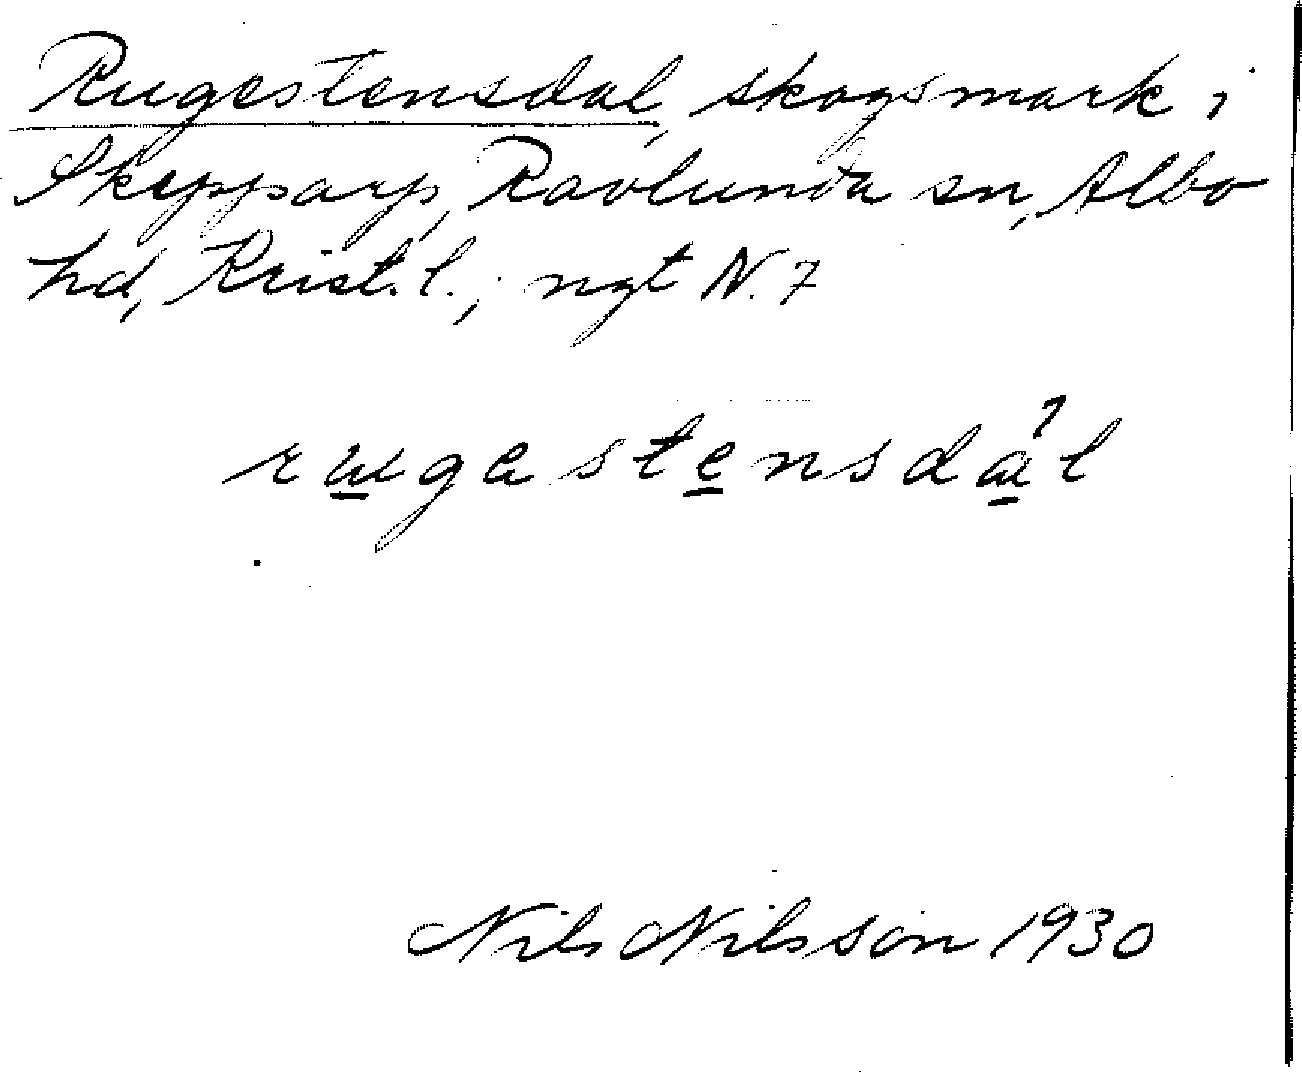 Rugestensdal, skogsmark i
Skepparp, Ravlunda sn, Albo
hd, Krist. l.; ngt N. 7
rugestensdál
Nils Nilsson 1930